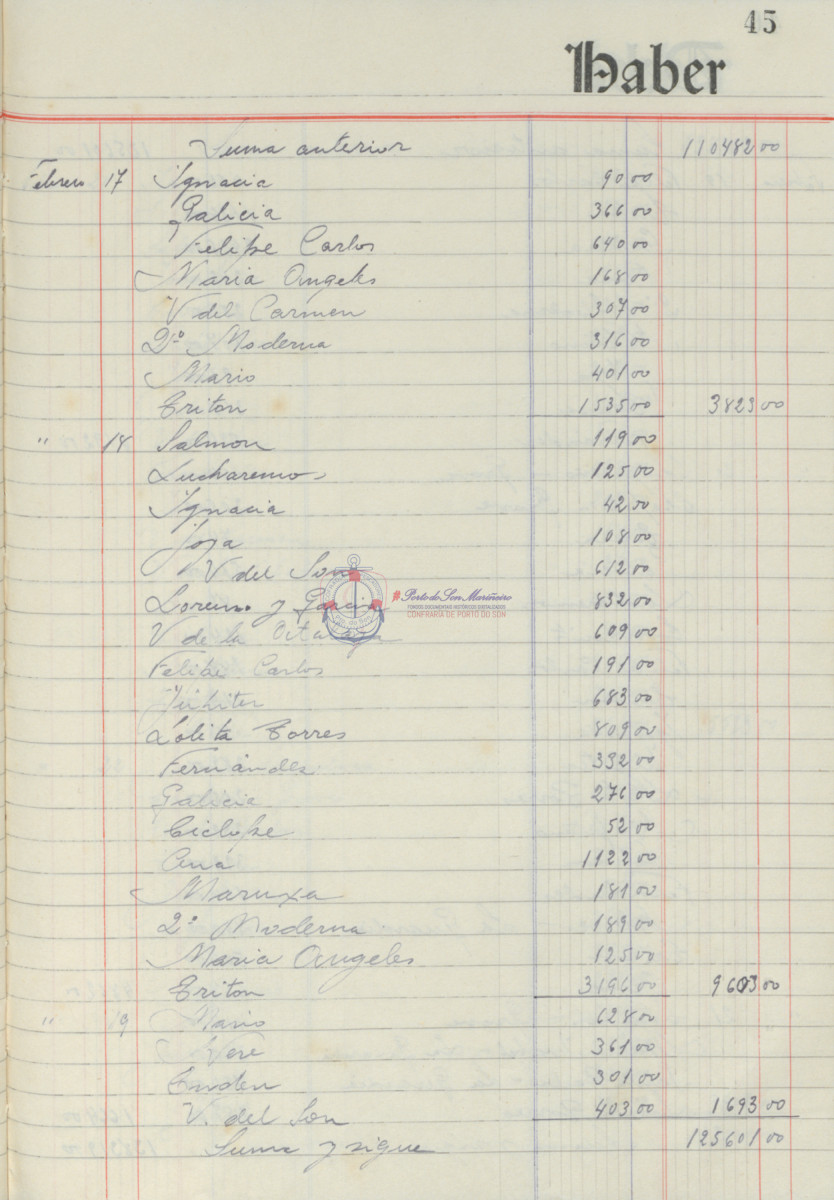 45
Haber
Suma anterior 110482 00
Febrero 17 Ignacia 90 00
Galicia 366 00
Felipe Carlos 640 00
Maria Angeles 168 00
V del Carmen 307 00
2º Moderna 316 00
Mario 401 00
Triton 1535 00 3823 00
" 18 Salmon 119 00
Lucharemos 125 00
Ignacia 42 00
Joya 108 00
V del Son 612 00
Lorenzo y Garcia 832 00
V de la 609 00
Felipe Carlos 191 00
Jupiter 683 00
Lolita Torres 809 00
Fernandez 332 00
Galicia 276 00
Ciclope 52 00
Ana 1122 00
Maruxa 181 00
2º Moderna 189 00
Maria Angeles 125 00
Triton 3196 00 9603 00
" 19 Mario 628 00
361 00
301 00
V. del Son 403 00 1693 00
Suma y sigue 125601 00
Porto do Son Mariñeiro
FONDOS DOCUMENTAIS HISTÓRICOS DIXITALIZADOS
CONFRARÍA DE PORTO DO SON